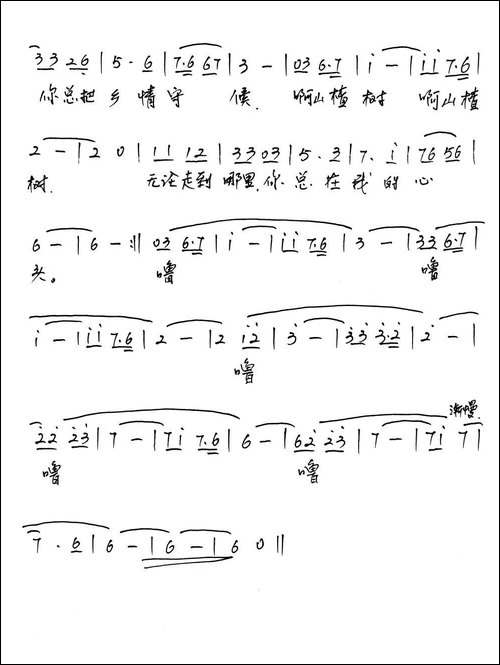 3 3 2 6 | 5 · 6 | 7·6 6 7 | 3 – | 0 3 6·7 | i – | i i 7·6 |
你总把乡情守候. 啊山楂树 啊山楂
2 – | 2 0 | 1 1 1 2 | 3 3 0 3 | 5 · 3 | 7 · i | 7 6 5 6 |
树. 无论走到哪里,你总在我的心
6 – | 6 – :‖ 0 3 6·7 | i – | i i 7·6 | 3 – | 3 3 6·7 |
头。 噜 噜
i – | i i 7·6 | 2 – | 2 i 2 | 3 – | 3 3 3·2 | 2 – |
噜
渐慢
2 2 2 3 | 7 – | 7 i 7·6 | 6 – | 6 2 2 3 | 7 – | 7 i 7 |
噜 噜
7 · 6 | 6 – | 6 – | 6 0 ‖